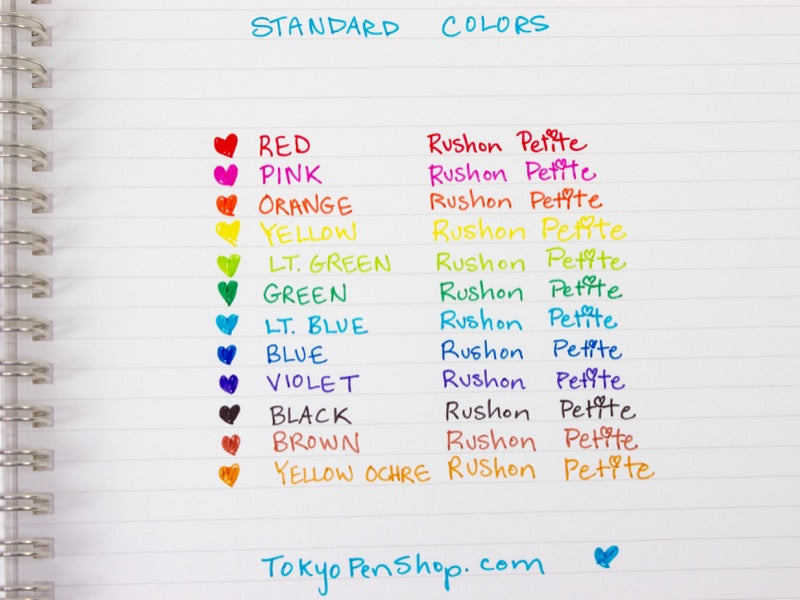 STANDARD COLORS
RED Rushon Petite
PINK Rushon Petite
ORANGE Rushon Petite
YELLOW Rushon Petite
LT. GREEN Rushon Petite
GREEN Rushon Petite
LT. BLUE Rushon Petite
BLUE Rushon Petite
VIOLET Rushon Petite
BLACK Rushon Petite
BROWN Rushon Petite
YELLOW OCHRE Rushon Petite
TokyoPenShop.com